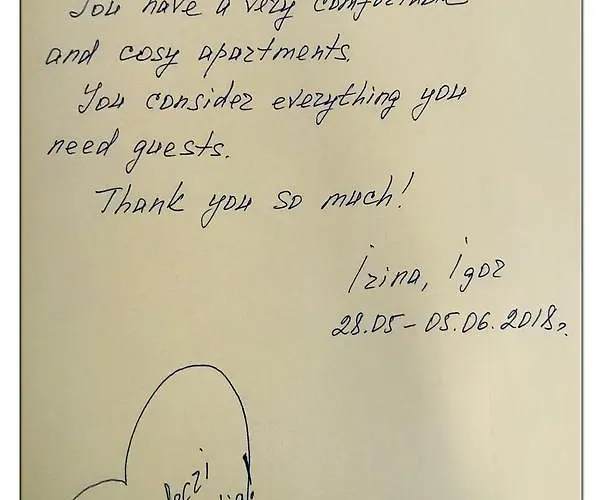 You have a very comfortable
and cosy apartments.
You consider everything you
need guests.
Thank you so much!
Irina, Igor
28.05-05.06.2018г.